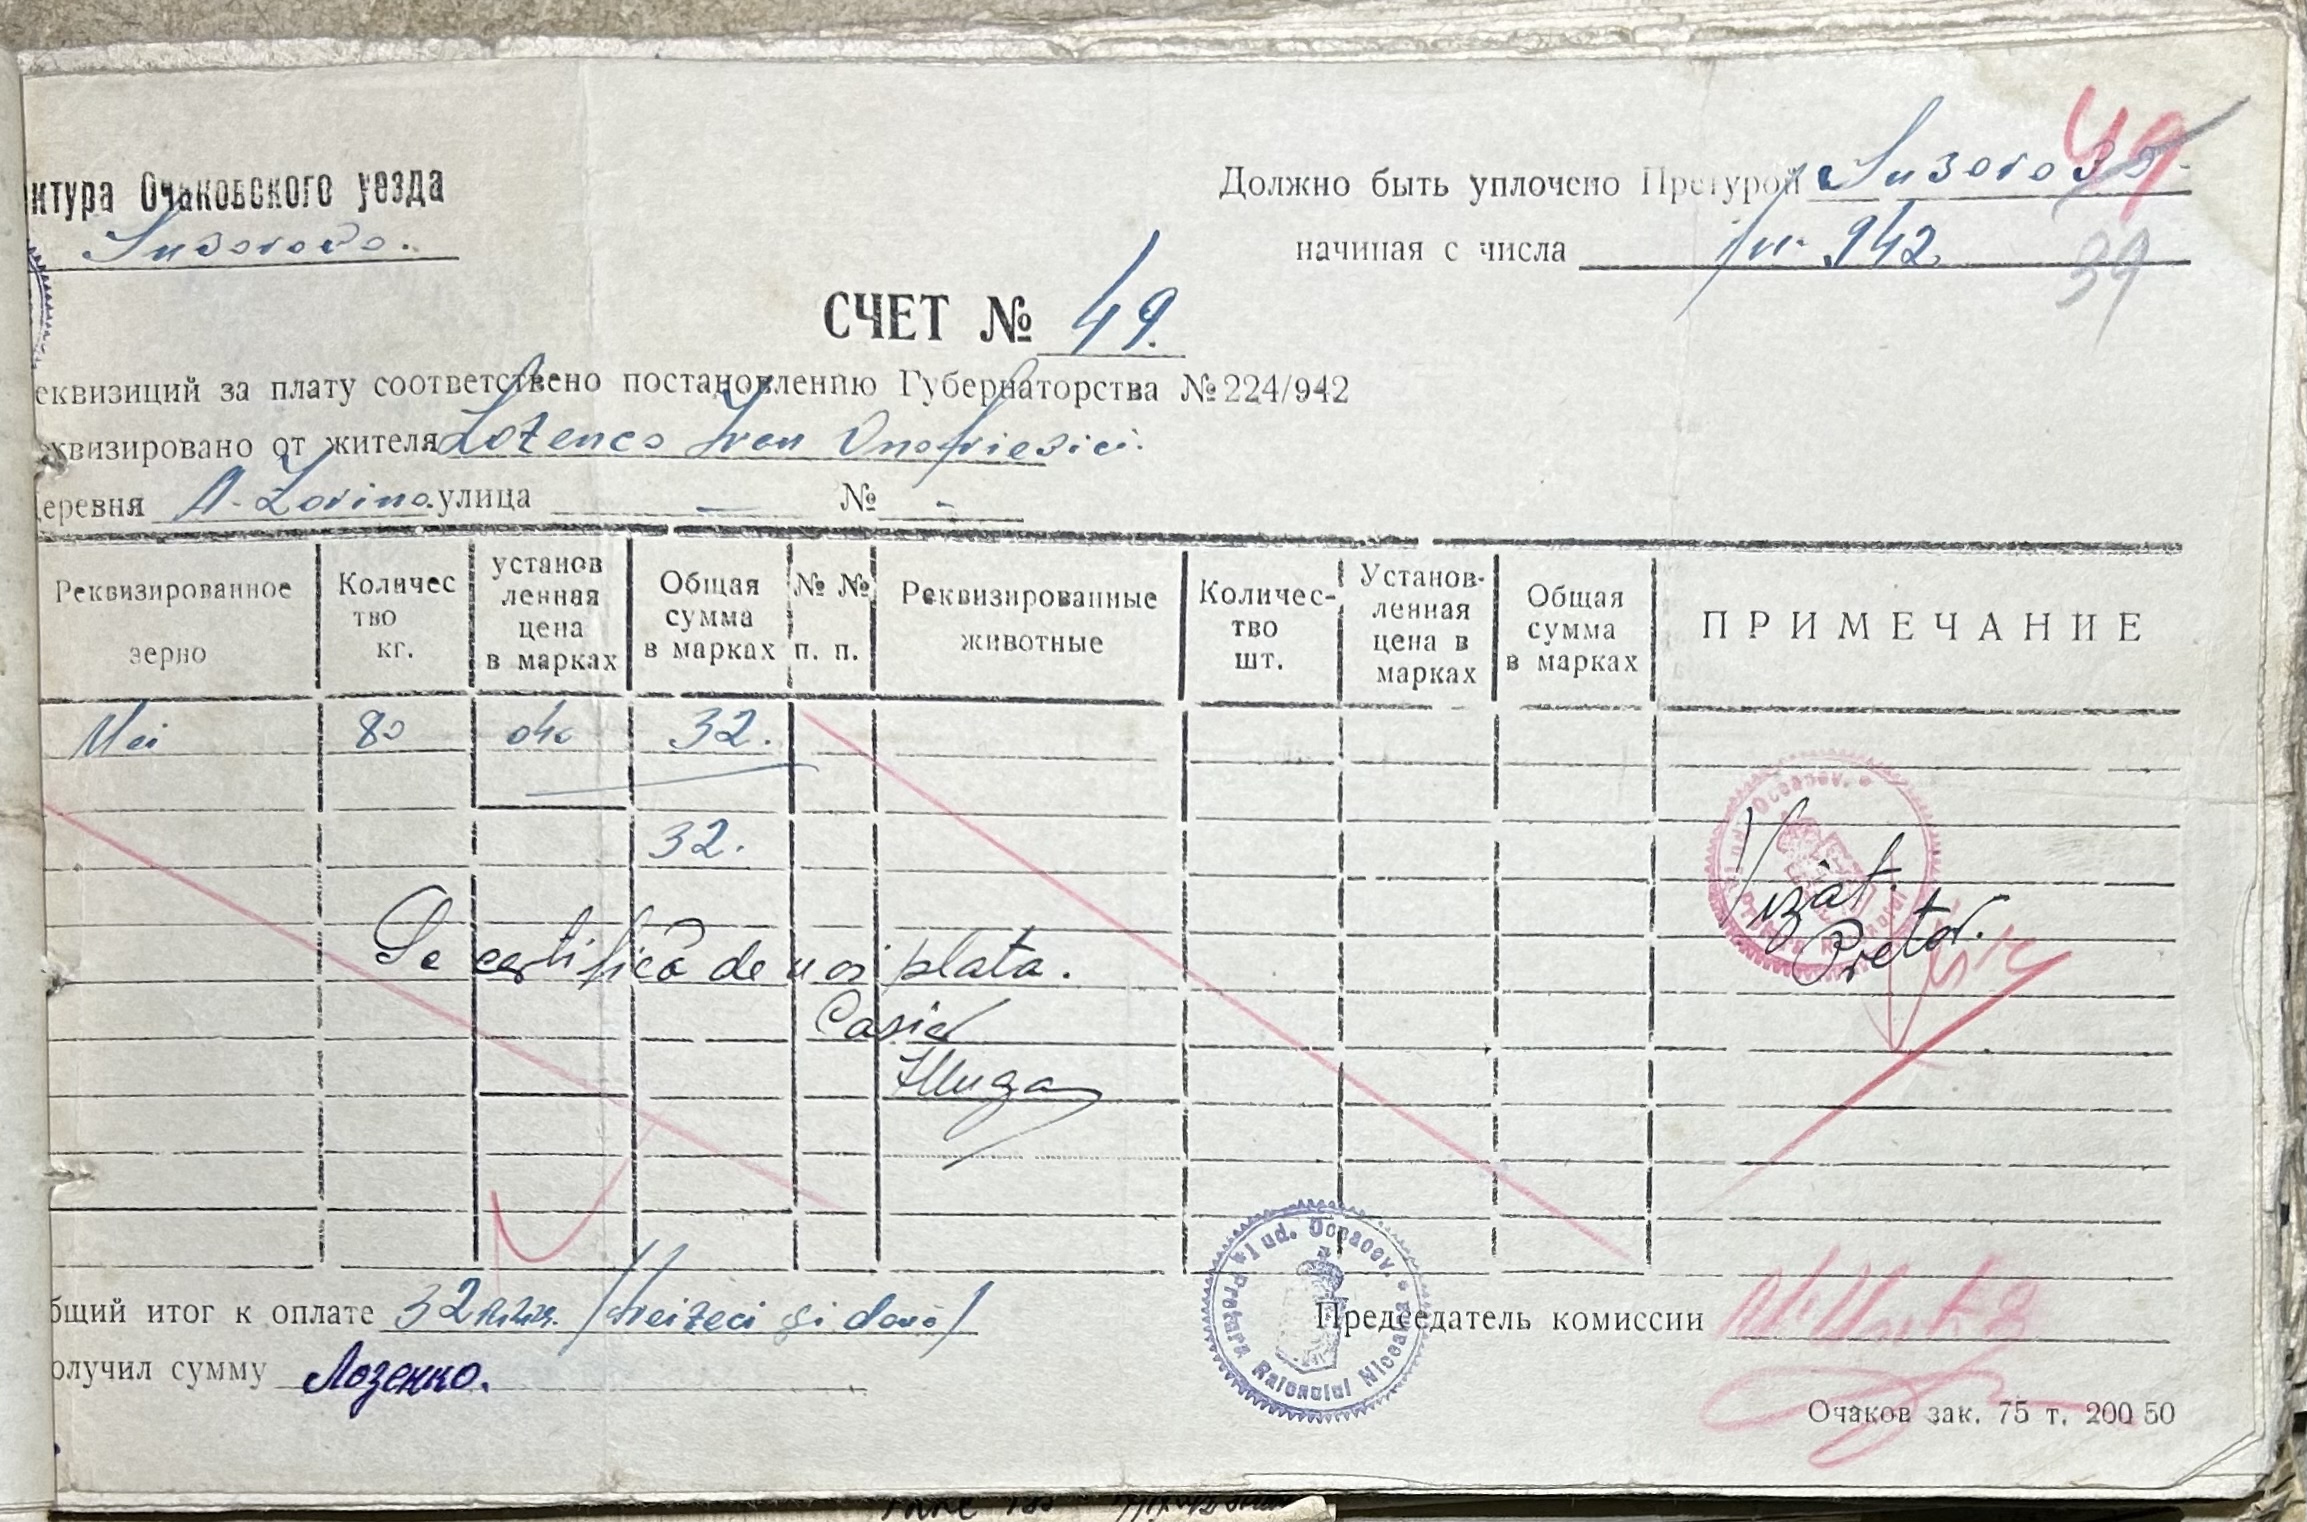 ктура Очаковского уезда
Suvorovo.
Должно быть уплочено Претурой Suvorovo
49
начиная с числа 942
39
СЧЕТ № 49.
еквизиций за плату соответствено постановлению Губернаторства № 224/942
квизировано от жителя Lozenco Ivan Onofrievici.
деревня A-Zorina. улица - № -
Реквизированное зерно
Количес тво кг.
установ ленная цена в марках
Общая сумма в марках
№ № п. п.
Реквизированные животные
Количес- тво шт.
Установ- ленная цена в марках
Общая сумма в марках
ПРИМЕЧАНИЕ
Mei 80 040 32.
32.
Vizat.
Pretor.
Se certifică de noi plata.
Casier
бщий итог к оплате 32 /treizeci și două/
Председатель комиссии
олучил сумму Лозенко.
Jud. Oceacov. Pretura Raionului
Очаков зак. 75 т. 200 50